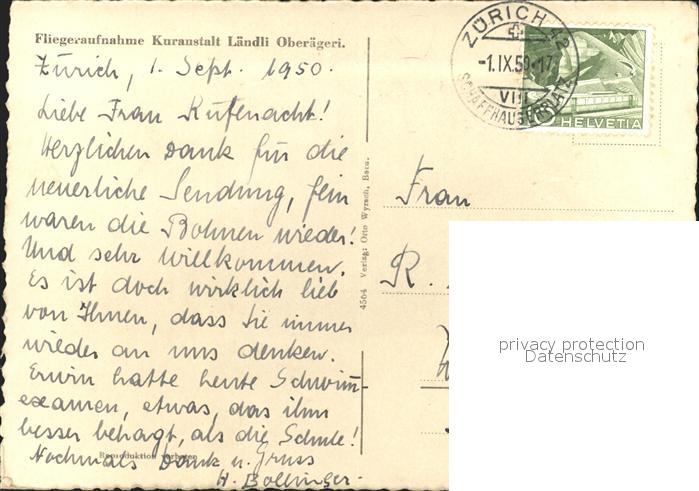 Fliegeraufnahme Kuranstalt Ländli Oberägeri.
Zürich, 1. Sept. 1950.
Liebe Frau Rufenacht!
Herzlichen Dank für die
neuerliche Sendung, fein
waren die Bohnen wieder!
Und sehr willkommen.
Es ist doch wirklich lieb
von Ihnen, dass Sie immer
wieder an uns denken.
Erwin hatte heute Schwimm-
examen, etwas, das ihm
besser behagt, als die Schule!
Nochmals Dank u. Gruss
H. Bollinger.
Reproduktion verboten
4564 Verlag: Otto Wyrsch, Baar.
ZÜRICH 42
-1.IX.50-17
VIII
SCHAFFHAUSERPLATZ
HELVETIA
Frau
R.
privacy protection
Datenschutz